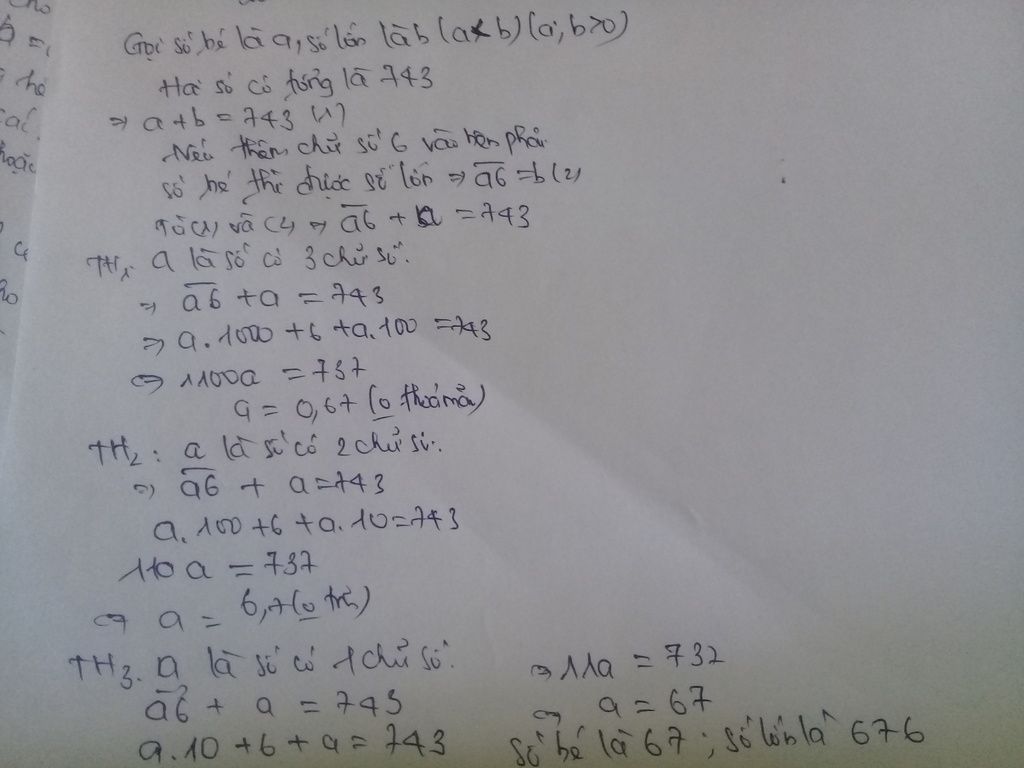 Gọi số bé là a, số lớn là b (a<b) (a; b>0)
Hai số có tổng là 743
⇒ a + b = 743 (1)
Nếu thêm chữ số 6 vào bên phải
số bé thì được số lớn ⇒ a6 = b (2)
Từ (1) và (2) ⇒ a6 + a = 743
TH1: a là số có 3 chữ số.
⇒ a6 + a = 743
⇒ a.1000 + 6 + a.100 = 743
⇔ 1100a = 737
a = 0,67 (0 thoả mãn)
TH2: a là số có 2 chữ số.
⇒ a6 + a = 743
a.100 + 6 + a.10 = 743
110a = 737
⇔ a = 6,7 (0 tm)
TH3. a là số có 1 chữ số.
a6 + a = 743
a.10 + 6 + a = 743
⇒ 11a = 732
⇔ a = 67
số bé là 67; số lớn là 676